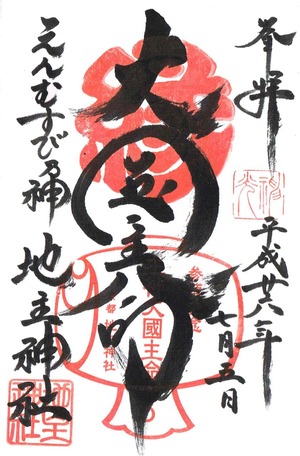 奉拝
平成廿六年
七月五日
大国主命
参拝記念
大國主命
京都地主神社
えんむすびの神
地主神社